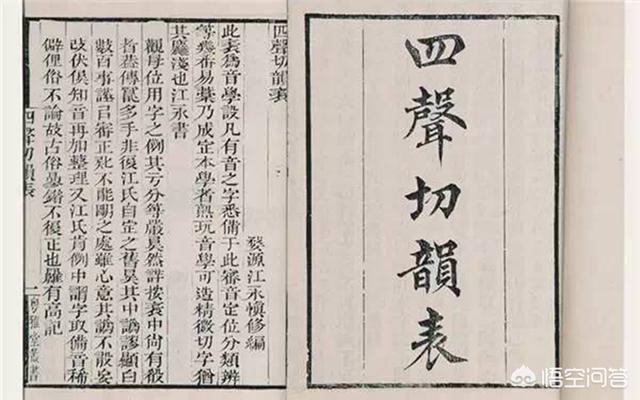 四聲切韻表
四聲切韻表
婺源江永慎修編
此表為音學設凡有音之字悉備于此審音定位分類辨
等幾番易藁乃成定本學者熟玩音學可造精微切字猶
其麤淺也江永書
觀母位用字之例其亏分等嚴具然詳按表中尚有殽
者葢傳寫多手非復江氏自定之舊其中譌謬顯白
數百事謹㠯審正不能之處雖心意其譌不敢妄
改伏俟知音再加整理又江氏例中謂字取備音稀
僻俚俗不論故古俗錯不復正也有高記
四聲切韻表
一
粵雅堂叢書
悟空问答